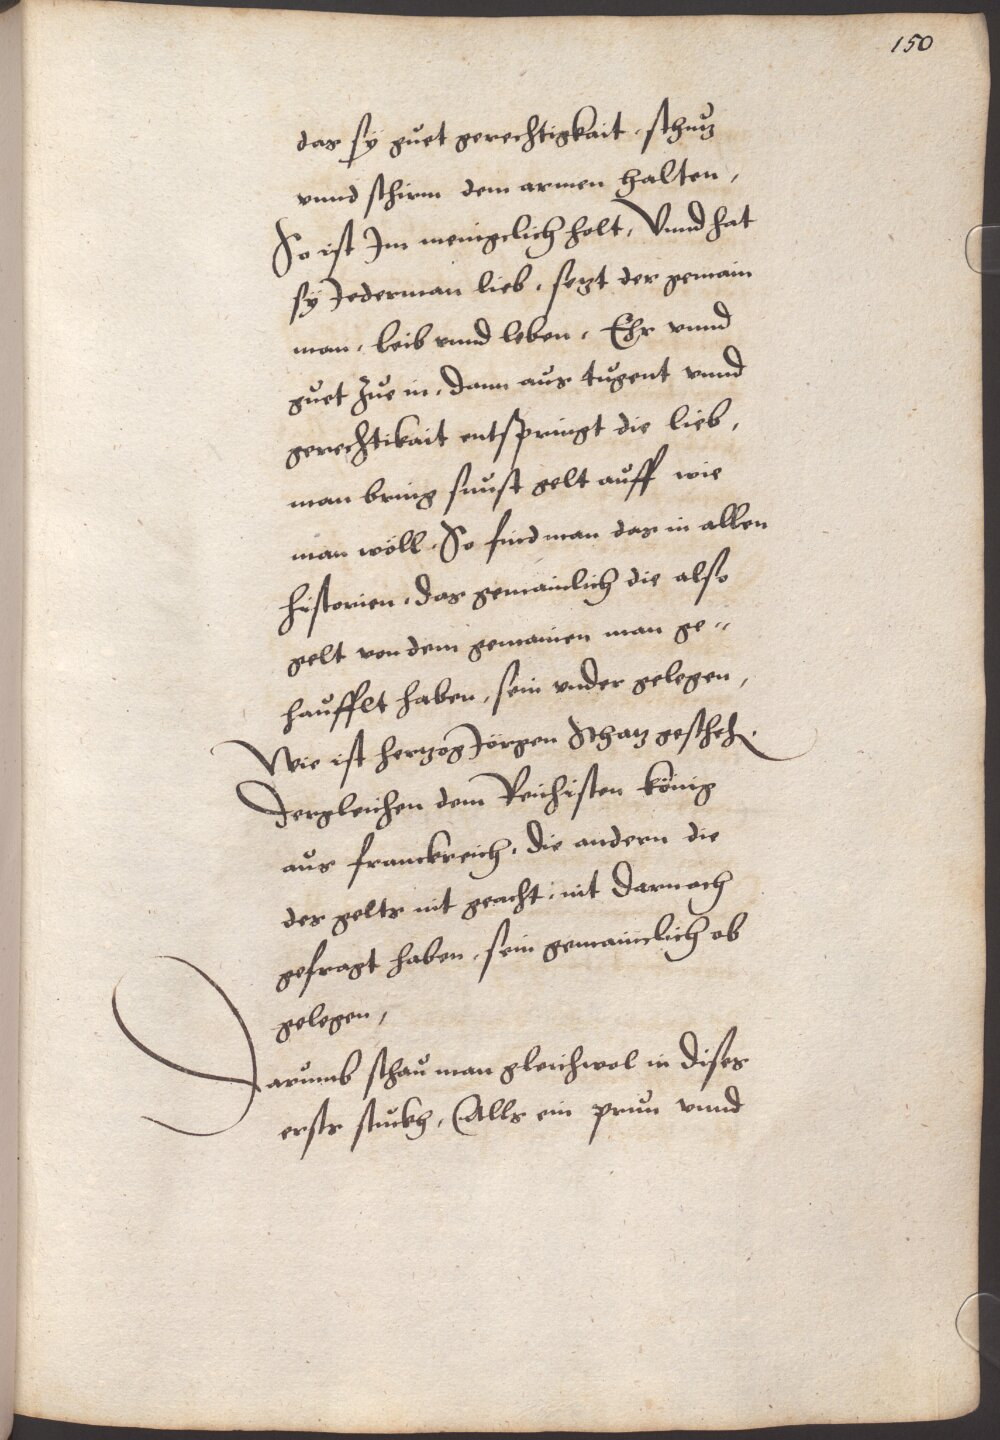 150
das sÿ guet gerechtigkait, schutz
vnnd schirm dem armen halten,
So ist Im menigclich holt, Vnnd hat
sÿ Jederman lieb, setzt der gemain
man, leib vnnd leben, Ehr vnnd
guet zue in, dann aus tugent vnnd
gerechtikait entspringt die lieb,
man bring sunst gelt auff wie
man wöll, So find man das in allen
historien, das gemainlich die also
gelt von dem gemainen man ge-
haufflt haben, sein vnder gelegen,
Wie ist hertzog Jörgen Schatz gescheh.
Dergleichen dem Reichisten könig
aus franckreich, die andern die
des gelts nit geacht, nit darnach
gefragt haben, sein gemainclich ob
gelegen,
Darumb schau man gleichwol in dises
erste stuckh, Alls ein prun vnnd